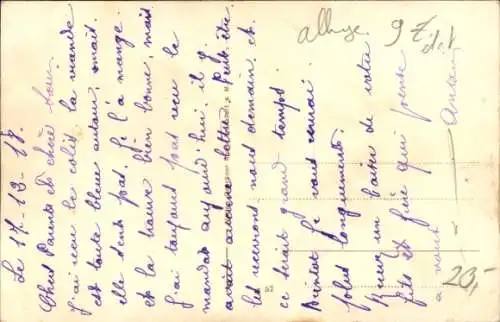 Le 17-12-18.
Chers Parents et chère Sœur
J'ai reçu le colis, la viande
est toute bleue autour, mais
elle sent pas. Je l'ai mangé
et la trouve bien bonne, mais
j'ai toujours pas reçu le
mandat aujourd'hui. il y
avait aucune lettre. Peut être
les recevrons nous demain. et
ce serait grand temps.
Bientôt je vous
plus longuement.
Recevez un baiser de votre
fils et frère qui pense
à vous
allhye. 9 t
20,-